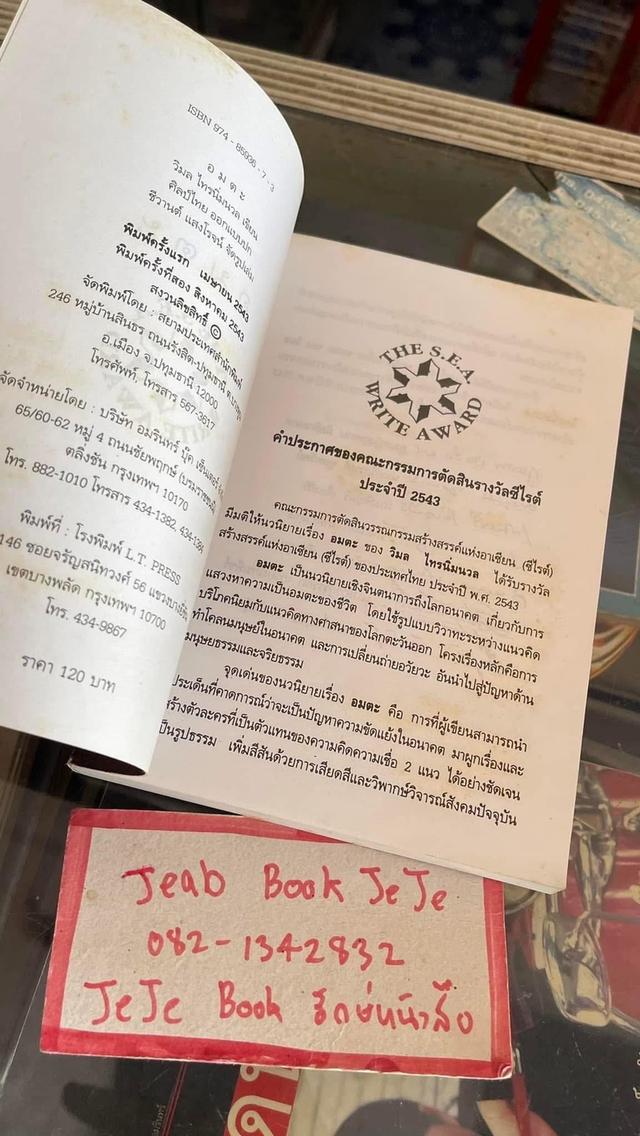 ISBN 974 - 85936 - 7 - 3
อ ม ต ะ
วิมล ไทรนิ่มนวล เขียน
ศิลป์ไทย ออกแบบปก
ชีวานต์ แสงโรจน์ จัดรูปเล่ม
พิมพ์ครั้งแรก เมษายน 2543
พิมพ์ครั้งที่สอง สิงหาคม 2543
สงวนลิขสิทธิ์ ©
จัดพิมพ์โดย : สยามประเทศสำนักพิมพ์
246 หมู่บ้านสินธร ถนนรังสิต-ปทุมธานี
อ.เมือง จ.ปทุมธานี 12000
โทรศัพท์, โทรสาร 567-3617
จัดจำหน่ายโดย : บริษัท อมรินทร์ บุ๊ค เซ็นเตอร์
65/60-62 หมู่ 4 ถนนชัยพฤกษ์ (บรมราชชนนี)
ตลิ่งชัน กรุงเทพฯ 10170
โทร. 882-1010 โทรสาร 434-1382, 434-1384
พิมพ์ที่ : โรงพิมพ์ L.T. PRESS
146 ซอยจรัญสนิทวงศ์ 56 แขวงบางยี่ขัน
เขตบางพลัด กรุงเทพฯ 10700
โทร. 434-9867
ราคา 120 บาท
THE S.E.A.
WRITE AWARD
คำประกาศของคณะกรรมการตัดสินรางวัลซีไรต์
ประจำปี 2543
คณะกรรมการตัดสินวรรณกรรมสร้างสรรค์แห่งอาเซียน (ซีไรต์)
มีมติให้นวนิยายเรื่อง อมตะ ของ วิมล ไทรนิ่มนวล ได้รับรางวัล
สร้างสรรค์แห่งอาเซียน (ซีไรต์) ของประเทศไทย ประจำปี พ.ศ. 2543
อมตะ เป็นนวนิยายเชิงจินตนาการถึงโลกอนาคต เกี่ยวกับการ
แสวงหาความเป็นอมตะของชีวิต โดยใช้รูปแบบวิวาทะระหว่างแนวคิด
บริโภคนิยมกับแนวคิดทางศาสนาของโลกตะวันออก โครงเรื่องหลักคือการ
ทำโคลนมนุษย์ในอนาคต และการเปลี่ยนถ่ายอวัยวะ อันนำไปสู่ปัญหาด้าน
มนุษยธรรมและจริยธรรม
จุดเด่นของนวนิยายเรื่อง อมตะ คือ การที่ผู้เขียนสามารถนำ
ประเด็นที่คาดการณ์ว่าจะเป็นปัญหาความขัดแย้งในอนาคต มาผูกเรื่องและ
สร้างตัวละครที่เป็นตัวแทนของความคิดความเชื่อ 2 แนว ได้อย่างชัดเจน
เป็นรูปธรรม เพิ่มสีสันด้วยการเสียดสีและวิพากษ์วิจารณ์สังคมปัจจุบัน
Jeab Book JeJe
082-1342832
JeJe Book รักษ์หนังสือ